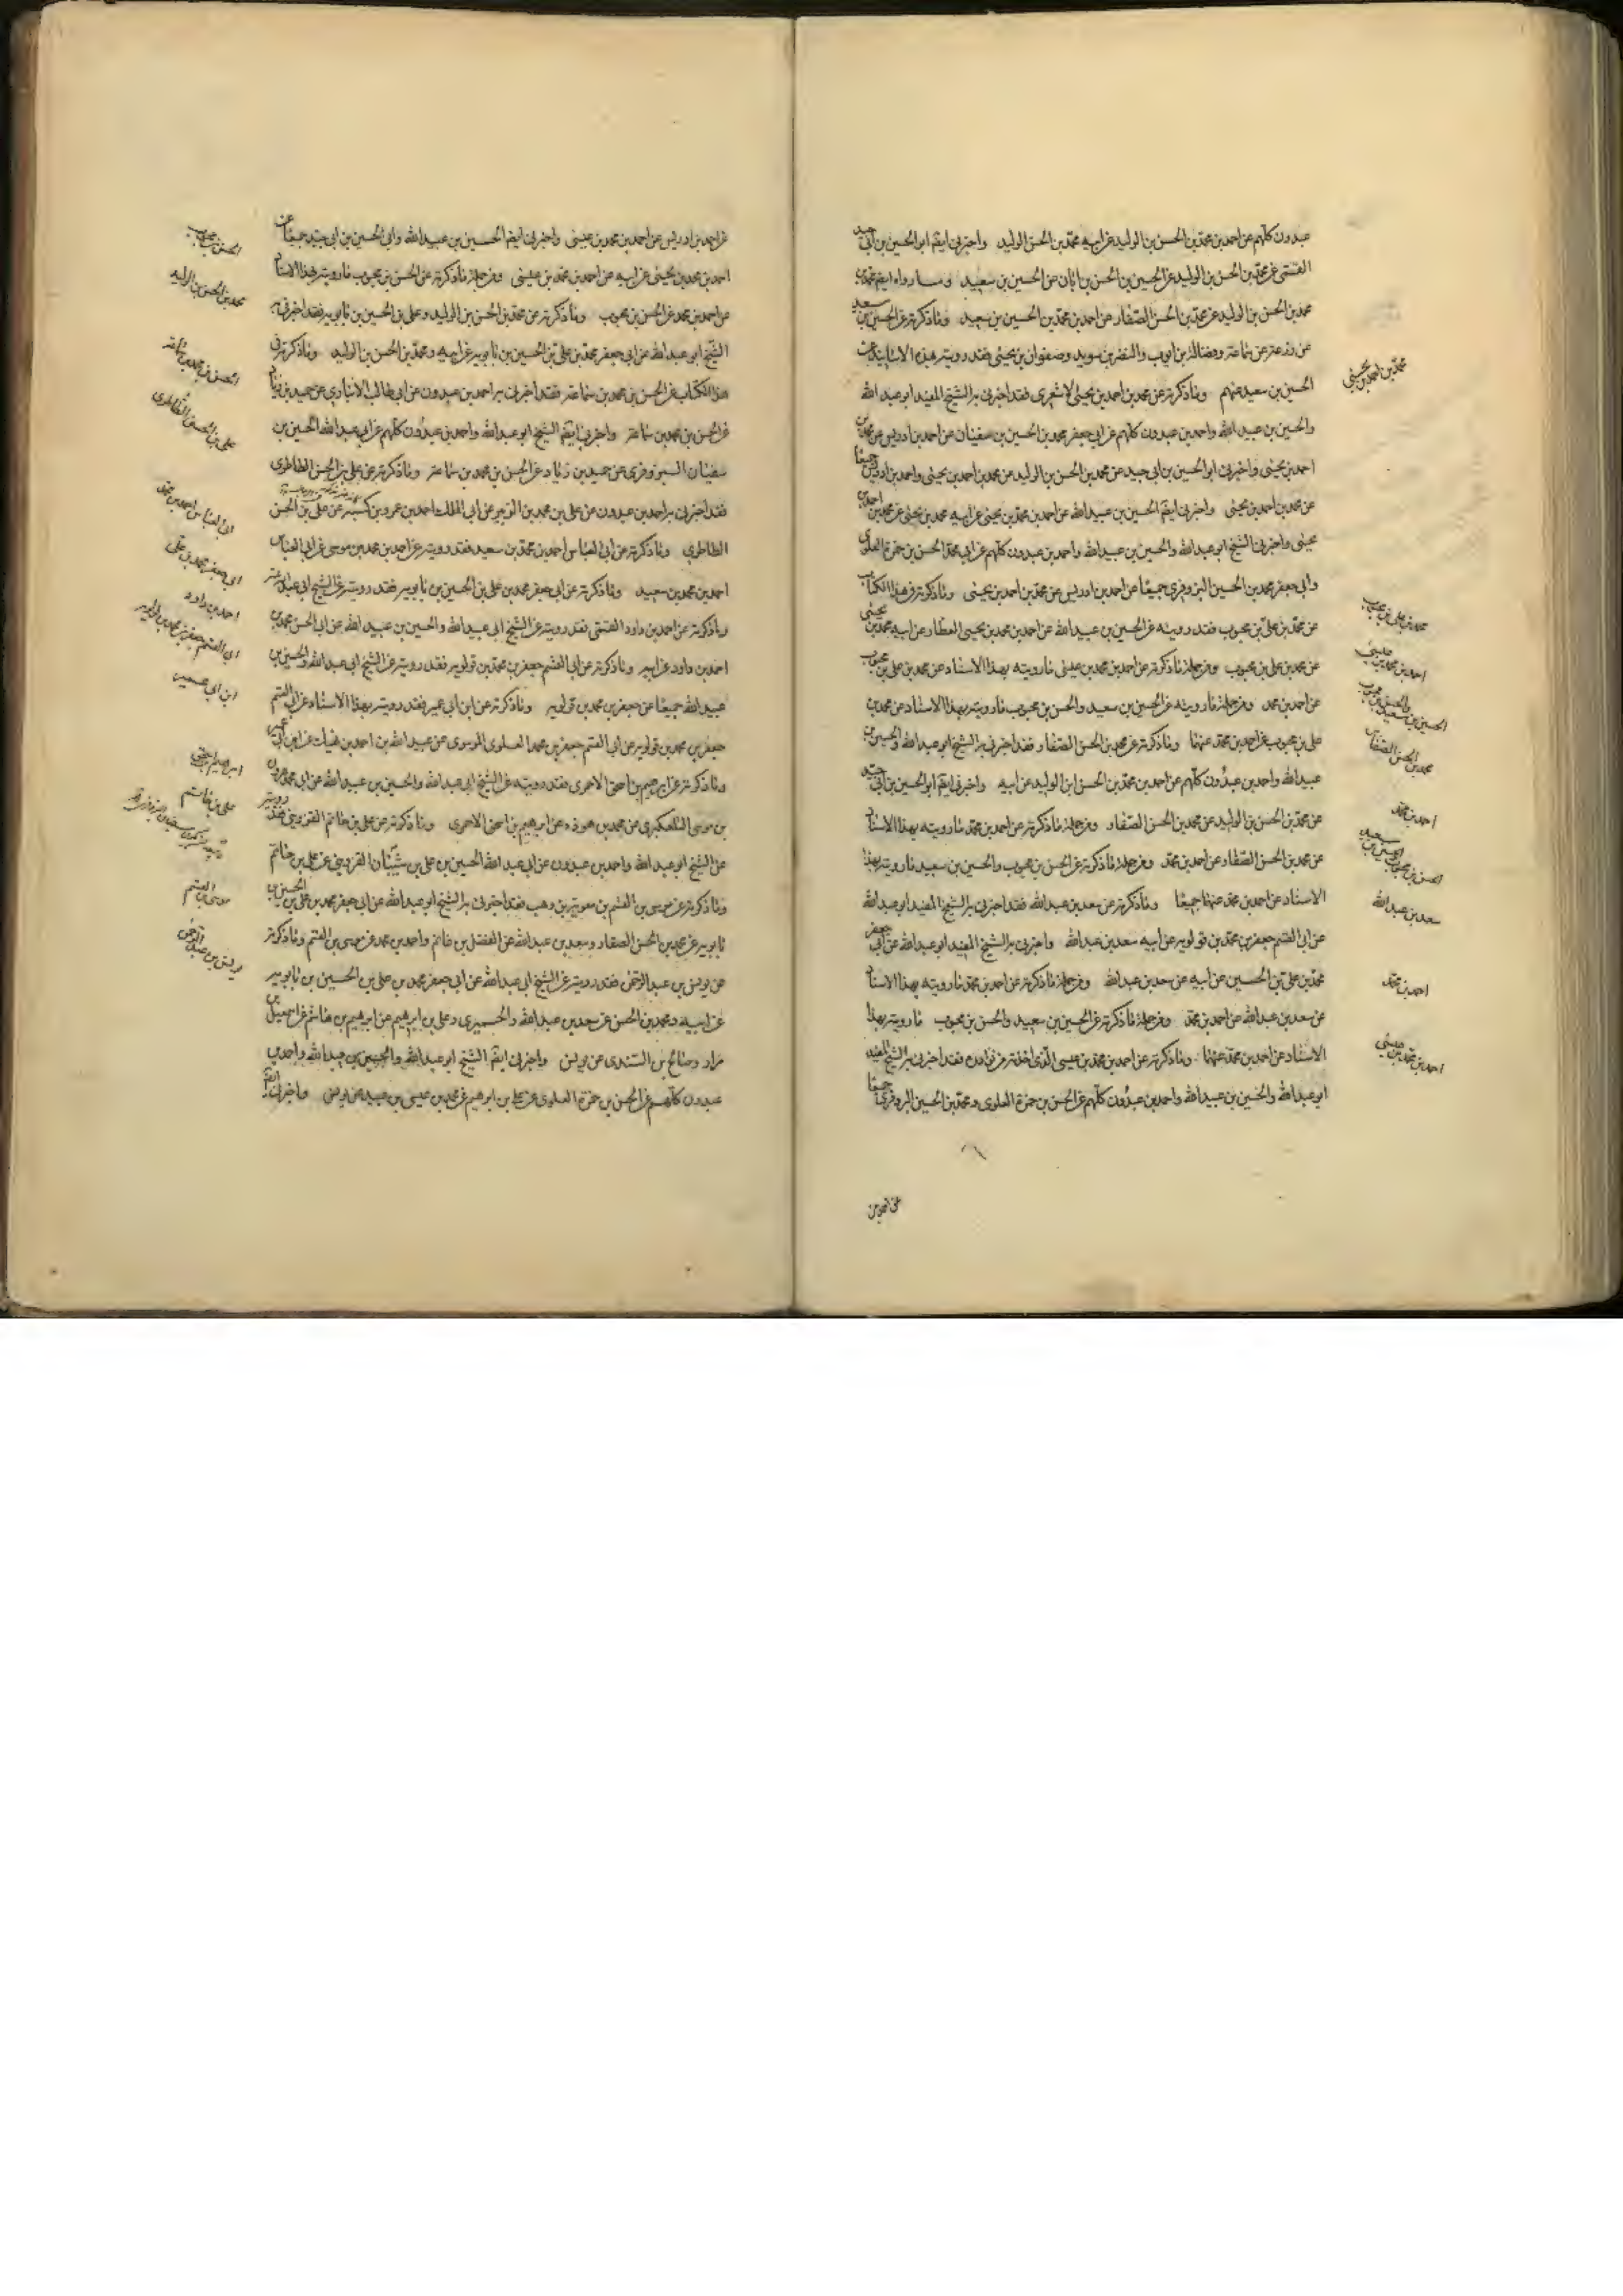 عبدون كلهم عن احمد بن محمد بن الحسن بن الوليد عن ابيه محمد بن الحسن الوليد واخبرنى ايضا ابو الحسين بن ابى جيد
القمى عن محمد بن الحسن بن الوليد عن الحسين بن الحسن بن ابان عن الحسين بن سعيد ومــا رواه ايضا محمد بن
محمد بن الحسن بن الوليد عن محمد بن الحسن الصفار عن احمد بن محمد بن الحسين بن سعيد وما ذكرته عن الحسين بن سعيد
عن زرعة عن سماعة وفضالة بن ايوب والنضر بن سويد وصفوان بن يحيى فقد رويته هذه الاسانيد عن
الحسين بن سعيد عنهم وما ذكرته عن محمد بن احمد بن يحيى الاشعرى فقد اخبرنى به الشيخ المفيد ابو عبد الله
والحسين بن عبيد الله واحمد بن عبدون كلهم عن ابى جعفر محمد بن الحسين بن سفيان عن احمد بن ادريس عن محمد بن
احمد بن يحيى واخبرنى ابو الحسين بن ابى جيد عن محمد بن الحسن بن الوليد عن محمد بن احمد بن يحيى واحمد بن ادريس جميعا
عن محمد بن احمد بن يحيى واخبرنى ايضا الحسين بن عبيد الله عن احمد بن محمد بن يحيى عن ابيه محمد بن يحيى عن محمد بن احمد بن
يحيى واخبرنى الشيخ ابو عبد الله والحسين بن عبيد الله واحمد بن عبدون كلهم عن ابى محمد الحسن بن حمزة العلوى
وابى جعفر محمد بن الحسين البزوفرى جميعا عن احمد بن ادريس عن محمد بن احمد بن يحيى وما ذكرته فى هذا الكتاب
عن محمد بن على بن محبوب فقد رويته عن الحسين بن عبيد الله عن احمد بن محمد بن يحيى العطار عن ابيه محمد بن يحيى
عن محمد بن على بن محبوب ومن جملة ما ذكرته عن احمد بن محمد بن عيسى ما رويته بهذا الاسناد عن محمد بن على بن محبوب
عن احمد بن محمد ومن جملة ما رويته عن الحسين بن سعيد والحسن بن محبوب ما رويته بهذا الاسناد عن محمد بن
على بن محبوب عن احمد بن محمد عنهما وما ذكرته عن محمد بن الحسن الصفار فقد اخبرنى به الشيخ ابو عبد الله والحسين بن
عبيد الله واحمد بن عبدون كلهم عن احمد بن محمد بن الحسن ابن الوليد عن ابيه واخبرنى ايضا ابو الحسين بن ابى جيد
عن محمد بن الحسن بن الوليد عن محمد بن الحسن الصفار ومن جملة ما ذكرته عن احمد بن محمد ما رويته بهذا الاسناد
عن محمد بن الحسن الصفار عن احمد بن محمد ومن جملة ما ذكرته عن الحسن بن محبوب والحسين بن سعيد ما رويته بهذا
الاسناد عن احمد بن محمد عنهما جميعا وما ذكرته عن سعد بن عبد الله فقد اخبرنى به الشيخ المفيد ابو عبد الله
عن ابى القسم جعفر بن محمد بن قولويه عن ابيه سعد بن عبد الله واخبرنى به الشيخ المفيد ابو عبد الله عن ابى جعفر
محمد بن على بن الحسين عن ابيه عن سعد بن عبد الله ومن جملة ما ذكرته عن احمد بن محمد ما رويته بهذا الاسناد
عن سعد بن عبد الله عن احمد بن محمد ومن جملة ما ذكرته عن الحسين بن سعيد والحسن بن محبوب ما رويته بهذا
الاسناد عن احمد بن محمد عنهما وما ذكرته عن احمد بن محمد بن عيسى الذى اخذته من نوادره فقد اخبرنى به الشيخ المفيد
ابو عبد الله والحسين بن عبيد الله واحمد بن عبدون كلهم عن الحسن بن حمزة العلوى ومحمد بن الحسين البزوفرى جميعا
محمد بن احمد بن يحيى
محمد بن على بن محبوب
احمد بن محمد بن عيسى
الحسين بن سعيد والحسن بن محبوب
محمد بن الحسن الصفار
احمد بن محمد
الحسن بن محبوب الحسين بن سعيد
سعد بن عبد الله
احمد بن محمد
احمد بن محمد بن عيسى
عن احمد بن ادريس عن احمد بن محمد بن عيسى واخبرنى ايضا الحسين بن عبيد الله وابى الحسين بن ابى جيد جميعا عن
احمد بن محمد بن يحيى عن ابيه عن احمد بن محمد بن عيسى ومن جملة ما ذكرته عن الحسن بن محبوب ما رويته بهذا الاسناد
عن احمد بن محمد عن الحسن بن محبوب وما ذكرته عن محمد بن الحسن بن الوليد وعلى بن الحسين بن بابويه فقد اخبرنى به
الشيخ ابو عبد الله عن ابى جعفر محمد بن على بن الحسين بن بابويه عن ابيه ومحمد بن الحسن بن الوليد وما ذكرته فى
هذا الكتاب عن الحسن بن محمد بن سماعة فقد اخبرنى به احمد بن عبدون عن ابى طالب الانبارى عن حميد بن زياد
عن الحسن بن محمد بن سماعة واخبرنى ايضا الشيخ ابو عبد الله واحمد بن عبدون كلهم عن ابى عبد الله الحسين بن
سفيان البزوفرى عن حميد بن زياد عن الحسن بن محمد بن سماعة وما ذكرته عن على بن الحسن الطاطرى
فقد اخبرنى به احمد بن عبدون عن على بن محمد بن الزبير عن ابى الملك احمد بن عمرو بن كيسبه عن على بن الحسن
الطاطرى وما ذكرته عن ابى العباس احمد بن محمد بن سعيد فقد رويته عن احمد بن محمد بن موسى عن ابى العباس
احمد بن محمد بن سعيد وما ذكرته عن ابى جعفر محمد بن على بن الحسين بن بابويه فقد رويته عن الشيخ ابى عبد الله
وما ذكرته عن احمد بن داود القمى فقد رويته عن الشيخ ابى عبد الله والحسين بن عبيد الله عن ابى الحسن محمد بن
احمد بن داود عن ابيه وما ذكرته عن ابى القسم جعفر بن محمد بن قولويه فقد رويته عن الشيخ ابى عبد الله والحسين بن
عبيد الله جميعا عن جعفر بن محمد بن قولويه وما ذكرته عن ابن ابى عمير فقد رويته بهذا الاسناد عن ابى القسم
جعفر بن محمد بن قولويه عن ابى القسم جعفر بن محمد العلوى الموسوى عن عبيد الله بن احمد بن نهيك عن ابن ابى عمير
وما ذكرته عن ابرهيم بن اسحق الاحمرى فقد رويته عن الشيخ ابى عبد الله والحسين بن عبيد الله عن ابى محمد هرون
بن موسى التلعكبرى عن محمد بن هوذه عن ابرهيم بن اسحق الاحمرى وما ذكرته عن على بن حاتم القزوينى فقد رويته
عن الشيخ ابو عبد الله واحمد بن عبدون عن ابى عبد الله الحسين بن على بن شيبان القزوينى عن على بن حاتم
وما ذكرته عن موسى بن القسم بن معوية بن وهب فقد اخبرنى به الشيخ ابو عبد الله عن ابى جعفر محمد بن على بن الحسين بن
بابويه عن محمد بن الحسن الصفار وسعد بن عبد الله عن الفضل بن غانم واحمد بن محمد عن موسى بن القسم وما ذكرته
عن يونس بن عبد الرحمن فقد رويته عن الشيخ ابى عبد الله عن ابى جعفر محمد بن على بن الحسين بن بابويه
عن ابيه ومحمد بن الحسن عن سعد بن عبد الله والحميرى وعلى بن ابرهيم عن ابرهيم بن هاشم عن اسمعيل بن
مرار وصالح بن السندى عن يونس واخبرنى ايضا الشيخ ابو عبد الله والحسين بن عبيد الله واحمد بن
عبدون كلهم عن الحسن بن حمزة العلوى عن على بن ابرهيم عن محمد بن عيسى بن عبيد عن يونس واخبرنى ايضا
الحسن بن محبوب
محمد بن الحسن بن الوليد
الحسن بن محمد بن سماعة
على بن الحسن الطاطرى
ابى العباس احمد بن محمد
ابى جعفر محمد بن على
احمد بن داود
ابى القسم جعفر بن محمد بن قولويه
ابن ابى عمير
ابرهيم بن اسحق
على بن حاتم
موسى بن القسم
يونس بن عبد الرحمن